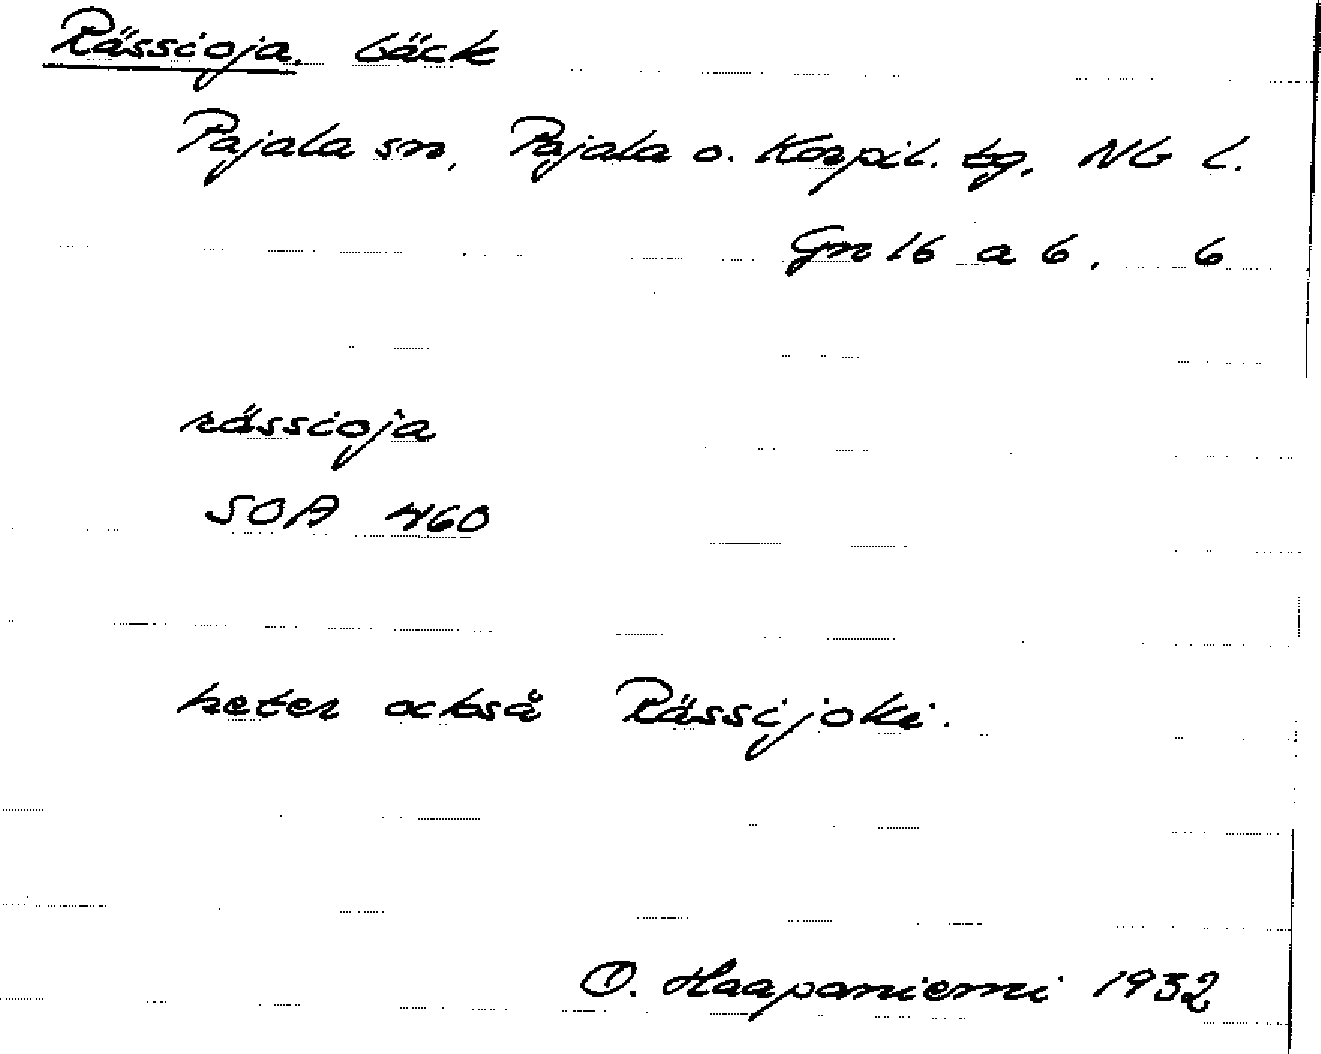 Rässioja, bäck
Pajala sn, Pajala o. Korpil. tg, Nb l.
Gn 16 a b, 6
rässioja
SOA 460
heter också Rässijoki.
O. Haapaniemi 1932